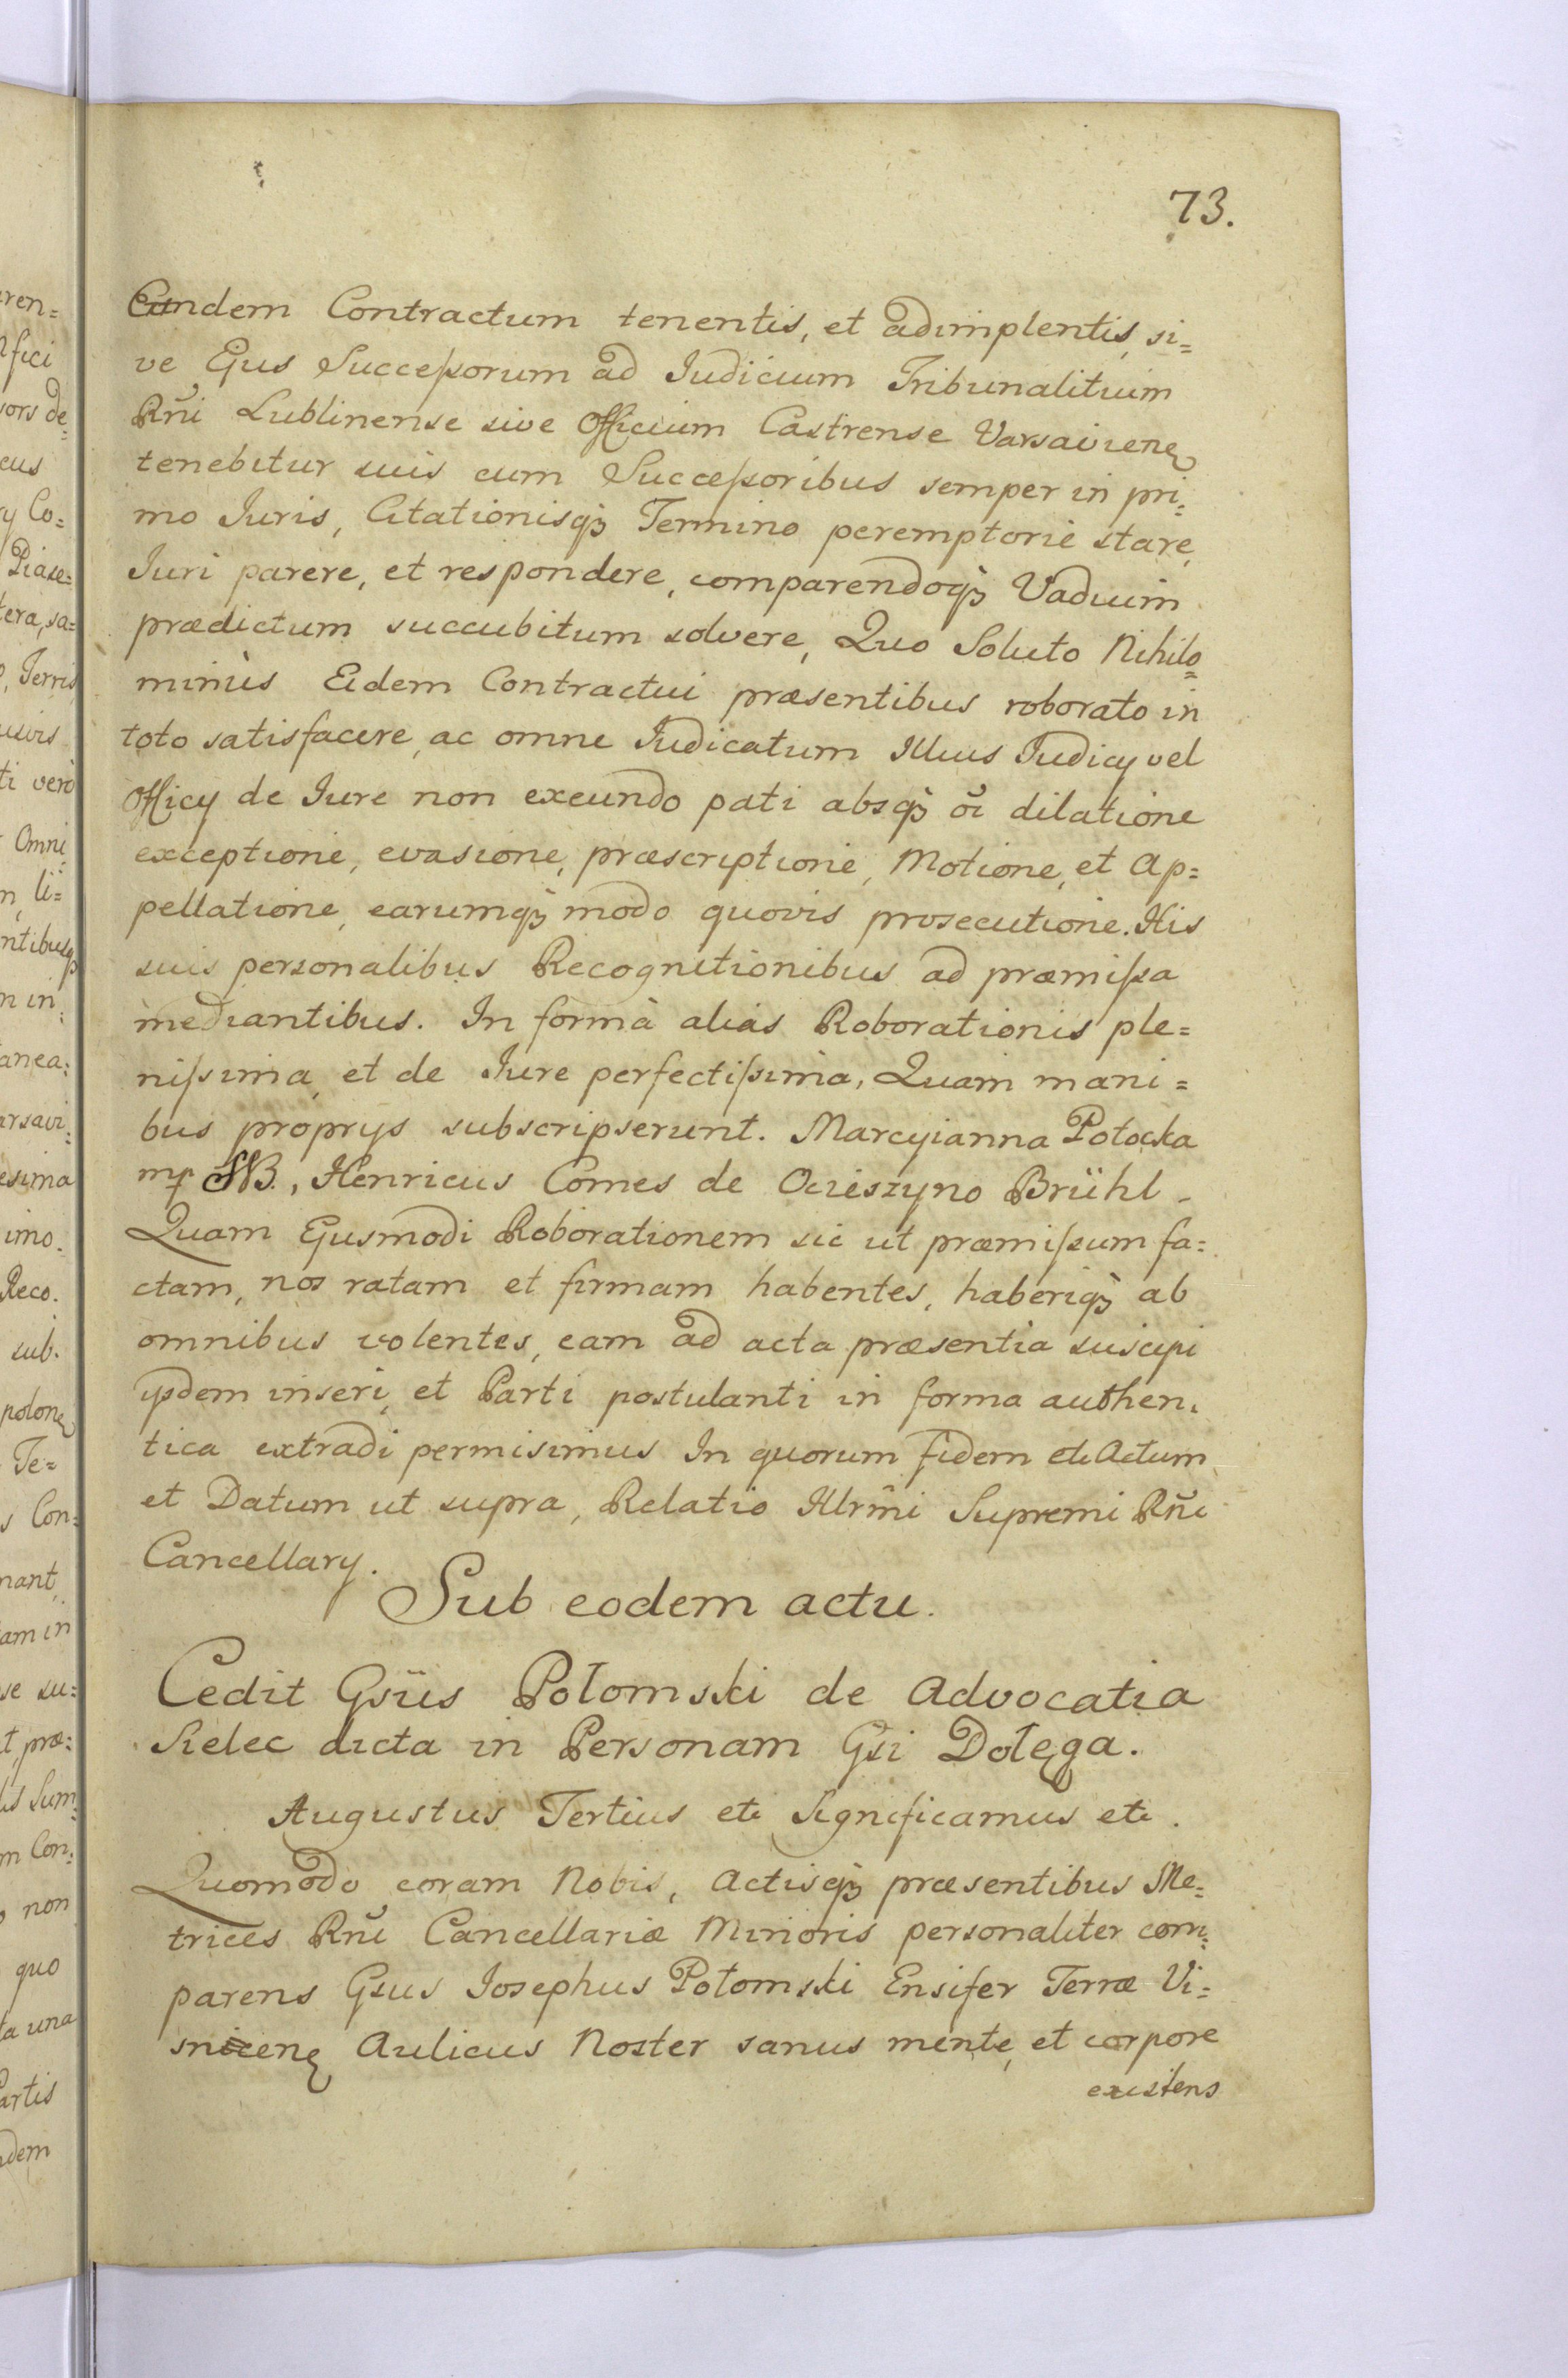 73.
Eundem Contractum tenentis, et adimplentis, si=
ve Ejus Succeſsorum ad Iudicium Tribunalitium
Rñi Lublinense sive Officium Castrense Varsavienȩ
tenebitur suis cum Succeſsoribus semper in pri=
mo Iuris, Citationisqꝫ Termino peremptorie stare,
Iuri parere, et respondere, comparendoqꝫ Vadium
prædictum succubitum solvere, Quo Soluto Nihilo=
minùs Eidem Contractui præsentibus roborato in
toto satisfacere, ac omne Iudicatum Illius Iudicy vel
Officy de Iure non exeundo pati absqꝫ oĩ dilatione
exceptione, evasione, præscriptione, Motione, et Ap=
pellatione, earumqꝫ modo quovis prosecutione. His
suis personalibus Recognitionibus ad præmiſsa
mediantibus. In formà alias Roborationis ple=
niſsima, et de Iure perfectiſsima, Quam mani=
bus proprys subscripserunt. Marcyianna Potocka
mp SWB., Henricus Comes de Ocieszyno Brühl.
Quam Ejusmodi Roborationem sic ut præmiſsum fa=
ctam, nos ratam et firmam habentes, haberiqꝫ ab
omnibus volentes, eam ad acta præsentia suscipi
ysdem inseri, et Parti postulanti in forma authen=
tica extradi permisimus In quorum fidem etc Actum
et Datum ut supra, Relatio Illrm̃i Supremi Rñi
Cancellary.
Sub eodem actu.
Cedit Gsüs Połomski de Advocatia
Sielec dicta in Personam Gsi Dołęga.
Augustus Tertius etc Significamus etc.
Quomodo coram Nobis, Actisqꝫ præsentibus Me=
trices Rñi Cancellariæ Minoris personaliter com=
parens Gsus Iosephus Połomski Ensifer Terræ Vi=
snicenȩ Aulicus Noster sanus mente, et corpore
existens